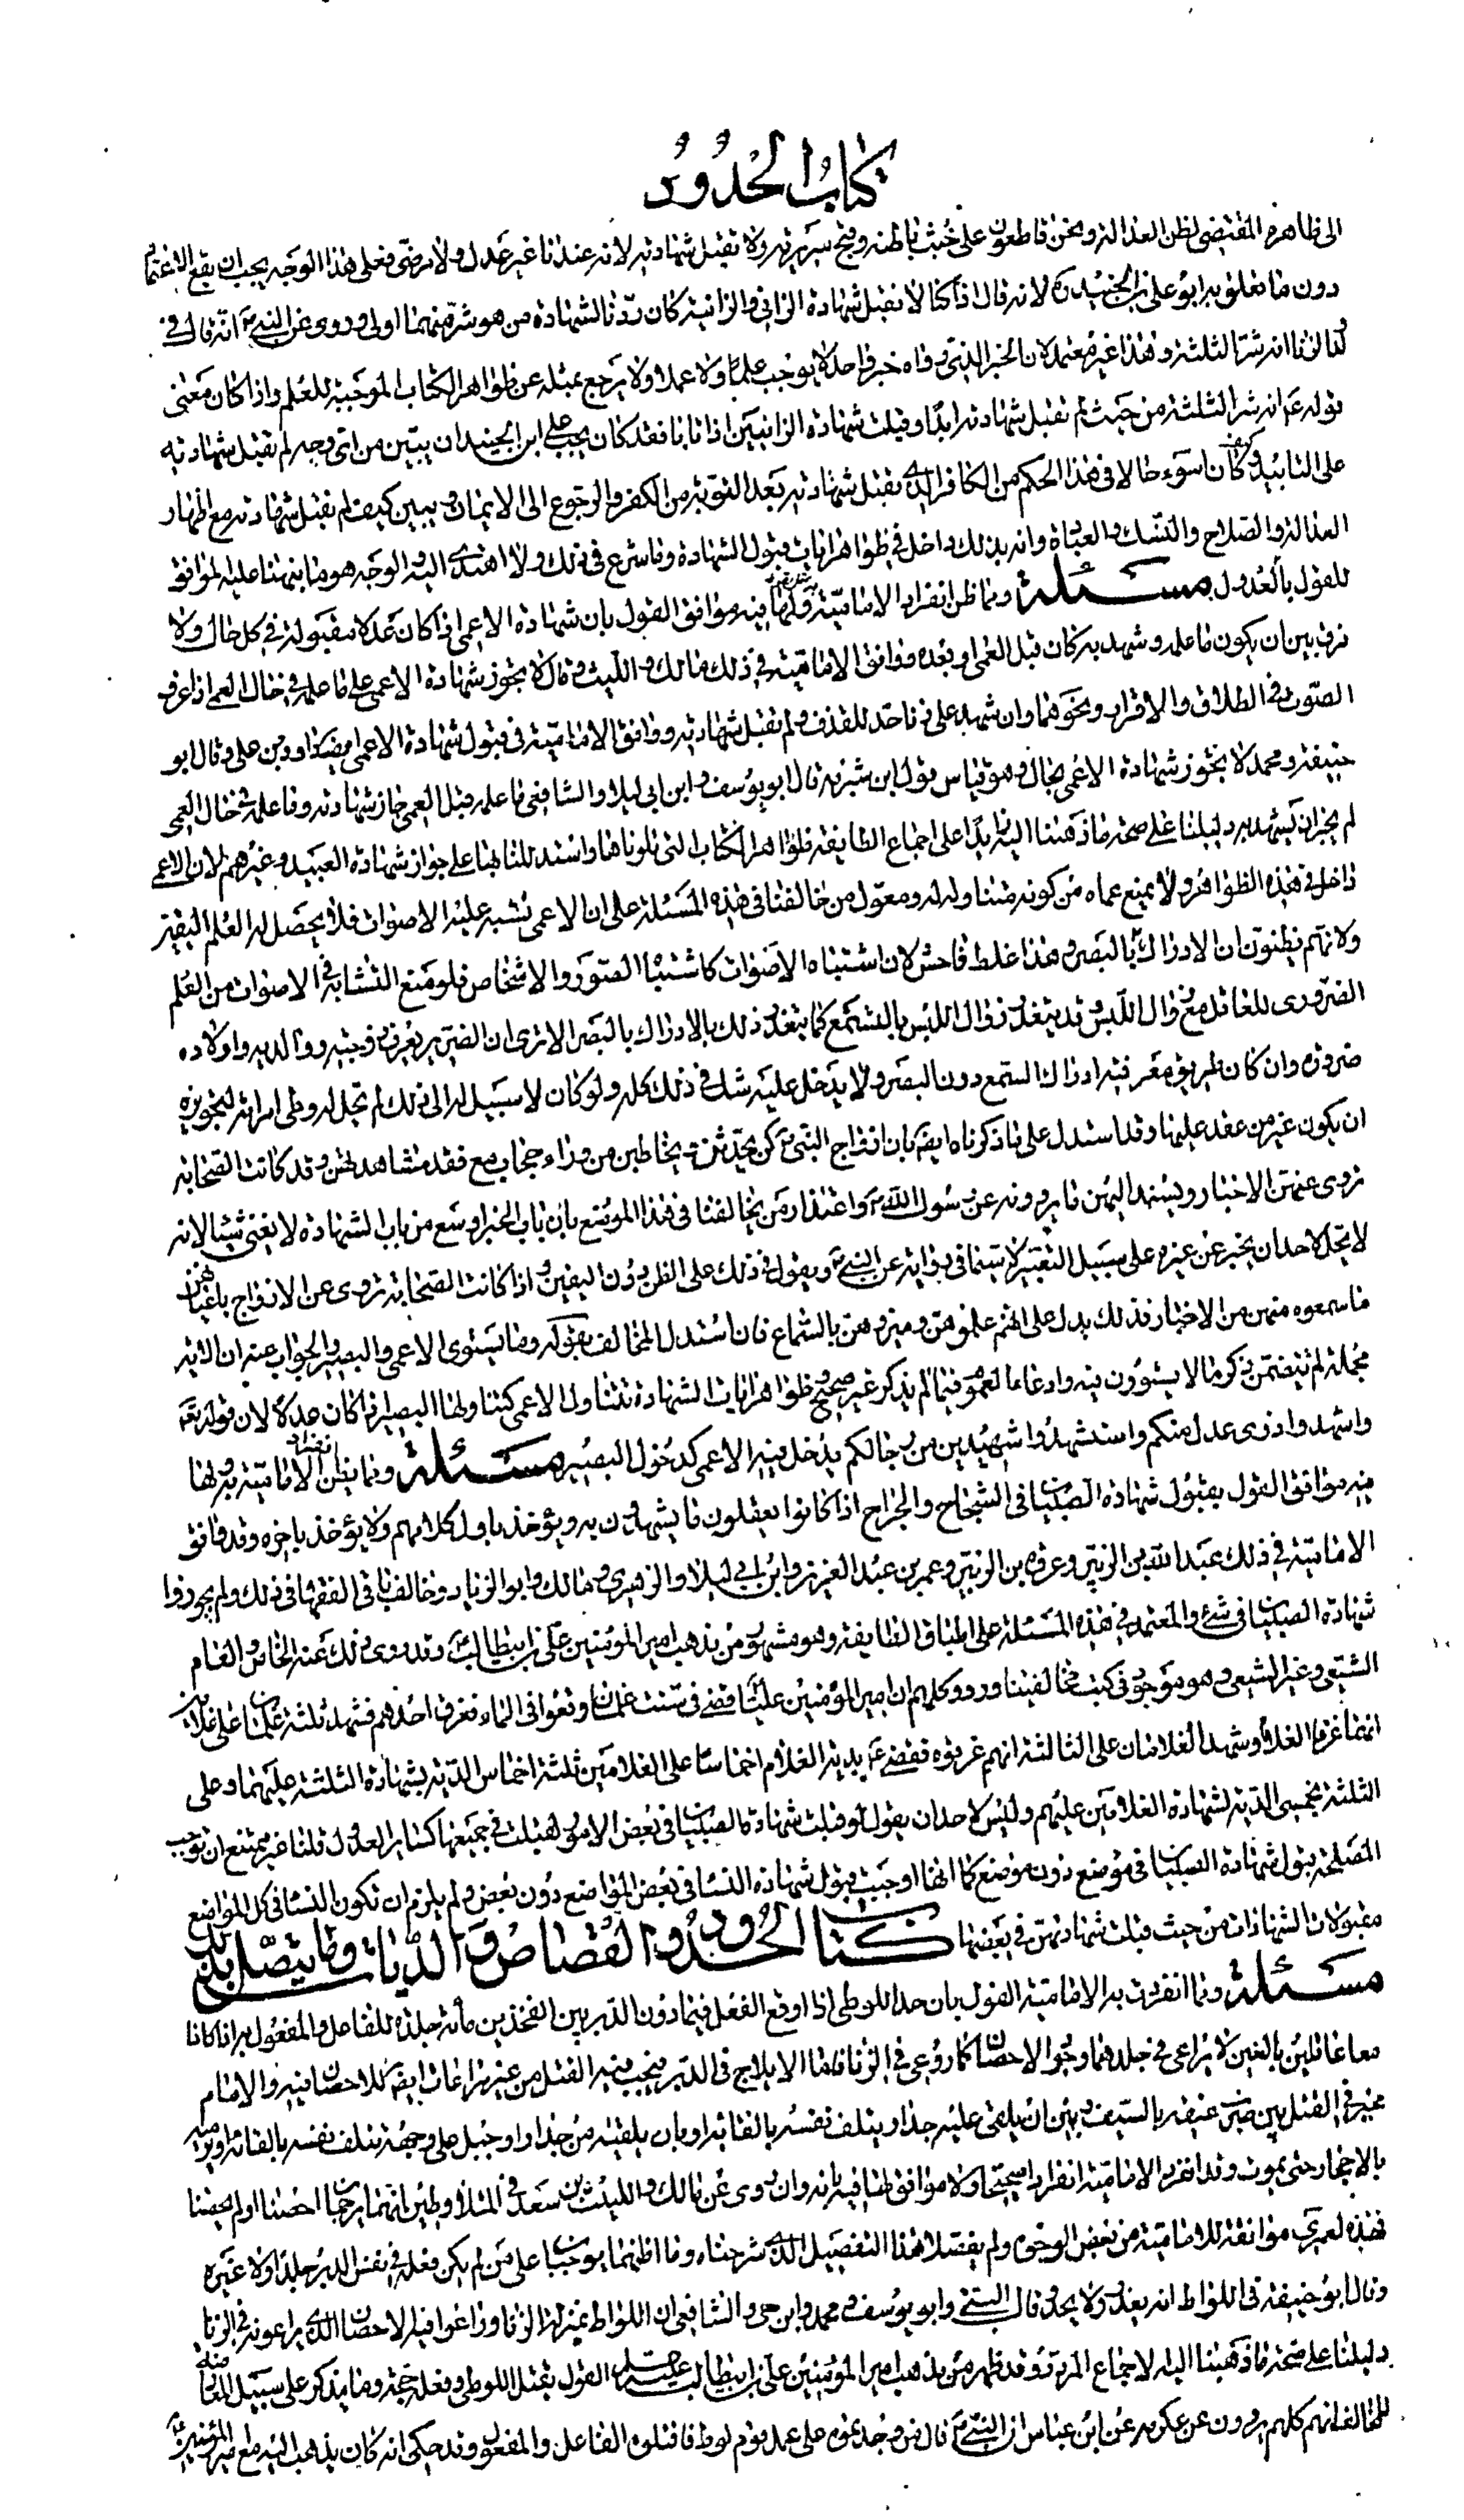 كتاب الحدود
الى ظاهره المقتضى لظن العدالة ونحن قاطعون على خبث باطنه وقبح سريرته ولا تقبل شهادته لانه عندنا غير عدل ولا مرضى فعلى هذا الوجه يجب ان يقع الاعتماد
دون ما تعلق به ابو على بن الجنيد ره لانه قال اذا كنا لا نقبل شهادة الزانى والزانية كان ردنا لشهادة من هو شر منهما اولى وروى عن النبى ص انه قال فى
ولد الزنا انه شر الثلثة وهذا غير معتمد لان الخبر الذى رواه خبر واحد لا يوجب علما ولا عملا ولا يرجع بمثله عن ظواهر الكتاب الموجبة للعلم واذا كان معنى
قوله ع انه شر الثلثة من حيث لم تقبل شهادته ابدا وقبلت شهادة الزانيين اذا تابا فقد كان يجب على ابن الجنيد ان يبين من اى وجه لم تقبل شهادته
على التابيد وكيف كان اسوء حالا فى هذا الحكم من الكافر الذى تقبل شهادته بعد التوبة من الكفر والرجوع الى الايمان ويبين كيف لم تقبل شهادته مع اظهار
العدالة والصلاح والنسك والعبادة وانه بذلك داخل فى ظواهر ايات قبول الشهادة وما شرع فى ذلك ولا اهتدى اليه والوجه هو ما نبهنا عليه الموافق
للقول بالعدول مسئلة ومما ظن انفراد الامامية به ولها فيه موافق القول بان شهادة الاعمى اذا كان عدلا مقبولة فى كل حال ولا
فرق بين ان يكون ما علمه وشهد به كان قبل العمى او بعده ووافق الامامية فى ذلك مالك والليث وقال لا يجوز شهادة الاعمى على ما علمه فى حال العمى اذا عرف
الصوت فى الطلاق والاقرار ونحوهما وان شهد على زنا حد للقذف ولم تقبل شهادته ووافق الامامية فى قبول شهادة الاعمى ايضا داود بن على وقال ابو
حنيفة ومحمد لا يجوز شهادة الاعمى بحال وهو قياس قول ابن شبرمة قال ابو يوسف وابن ابى ليلا والشافعى ما علمه قبل العمى جاز شهادته وما علمه فى حال العمى
لم يجز ان يشهد به دليلنا على صحة ما ذهبنا اليه زايدا على اجماع الطايفة ظواهر الكتاب التى تلوناها واستدللنا بها على جواز شهادة العبيد وغيرهم لان الاعمى
داخل فى هذه الظواهر ولا يمنع عماه من كونه متناولا له ومعول من خالفنا فى هذه المسئلة على ان الاعمى تشتبه عليه الاصوات فلا يحصل له العلم اليقين
ولانهم يظنون ان الادراك بالبصر وهذا غلط فاحش لان اشتباه الاصوات كاشتباه الصور والاشخاص فلو منع التشابه فى الاصوات من العلم
الضرورى للعاقل مع زوال اللبس وقد يتعذر زوال اللبس بالسمع كما يتعذر ذلك بالادراك بالبصر الا ترى ان الضرير يعرف زوجته ووالديه واولاده
ضرورة وان كان طريق معرفته ادراك السمع دون البصر ولا يدخل عليه شك فى ذلك كله ولو كان لا سبيل له الى ذلك لم تحل له وطى امراته لتجويزه
ان يكون غير من عقد عليها وقد استدل على ما ذكرناه ايضا بان ازواج النبى ص كن يحدثن و يخاطبن من وراء حجاب مع فقد مشاهدتهن وقد كانت الصحابة
تروى عنهن الاخبار ويسند اليهن ما يروونه عن رسول الله ص واعتذار من يخالفنا فى هذا الموضع بان باب الخبر اوسع من باب الشهادة لا يغنى شيئا لانه
لا يحل لاحد ان يخبر عن غيره على سبيل التعيين لا سيما فى رواية عن النبى ص ويعول فى ذلك على الظن دون اليقين واذا كانت الصحابة تروى عن الازواج باعيانهن
ما سمعوه منهن من الاخبار فذلك يدل على انهم علموهن وميزوهن بالسماع فان استدل المخالف بقوله وما يستوى الاعمى والبصير والجواب عنه ان الاية
مجملة لم تتضمن ذكر ما لا يستوون فيه وادعاء العموم فيما لم يذكر غير صحيح وظواهر ايات الشهادة تتناول الاعمى كتناولها البصير اذا كان عدلا لان قوله تع
واشهدوا ذوى عدل منكم واستشهدوا شهيدين من رجالكم يدخل فيه الاعمى كدخول البصير مسئلة ومما يظن انفراد الامامية به ولها
فيه موافق القول بقبول شهادة الصبيان فى الشجاج والجراح اذا كانوا يعقلون ما يشهدون به ويؤخذ باول كلامهم ولا يؤخذ باخره وقد وافق
الامامية فى ذلك عبد الله بن الزبير وعروة بن الزبير وعمر بن عبد العزيز وابن ابى ليلا والزهرى ومالك وابو الزناد وخالف باقى الفقهاء فى ذلك ولم يجوزوا
شهادة الصبيان فى شئ والمعتمد فى هذه المسئلة على اطباق الطايفة وهو مشهور من مذهب امير المؤمنين على بن ابيطالب ع وقد روى ذلك عنه الخاص والعام
الشيعى وغير الشيعى وهو موجود فى كتب مخالفينا ورووا كلهم ان امير المؤمنين عليه السلام قضى فى ستة غلمان وقعوا فى الماء فغرق احدهم فشهد ثلثة غلمان على غلامين
انهما غرقا الغلام وشهد الغلامان على الثلثة انهم غرقوه فقضى ع بدية الغلام اخماسا على الغلامين ثلثة اخماس الدية بشهادة الثلثة عليهما وعلى
الثلثة بخمسى الدية لشهادة الغلامين عليهم وليس لاحد ان يقول لو قبلت شهادة الصبيان فى بعض الامور لقبلت فى جميعها كساير العدول قلنا غير ممتنع ان توجب
المصلحة قبول شهادة الصبيان فى موضع دون موضع كما انها اوجبت قبول شهادة النساء فى بعض المواضع دون بعض ولم يلزم ان تكون النساء فى كل المواضع
مقبولات الشهادات من حيث قبلت شهادتهن فى بعضها كتاب الحدود والقصاص والديات وما يتصل بذلك
مسئلة ومما انفردت به الامامية القول بان حد اللوطى اذا اوقع الفعل فيما دون الدبر بين الفخذين مائة جلدة للفاعل والمفعول به اذا كانا
معا عاقلين بالغين لا يراعى فى جلدهما وجود الاحصان كما روعى فى الزنا فاما الايلاج فى الدبر فيجب فيه القتل من غير مراعات ايضا للاحصان فيه والامام
مخير فى القتل بين ضرب عنقه بالسيف وبين ان يلقى عليه جدار يتلف نفسه بالقائه او بان يلقيه من جدار او جبل على وجه تتلف نفسه بالقائه او يرميه
بالاحجار حتى يموت وقد انفرد الامامية انفرادا صحيحا ولا موافق لها فيه بانه وان روى عن مالك والليث بن سعد فى المتلاوطين انهما يرجمان احصنا او لم يحصنا
فهذه لعمرى موافقة للامامية من بعض الوجوه ولم يفصلا هذا التفصيل الذى شرحناه وما اظنهما يوجبان على من لم يكن فعله فى نفس الدبر جلدا ولا غيره
وقال ابو حنيفة فى اللواط انه يعزر ولا يحد وقال البتى وابو يوسف ومحمد وابن حى والشافعى ان اللواط بمنزلة الزنا وراعوا فيه الاحصان الذى يراعونه فى الزنا
دليلنا على صحة ما ذهبنا اليه الاجماع المتردد وقد ظهر من مذهب امير المؤمنين على بن ابيطالب عليه السلام القول بقتل اللوطى وفعله حجة ومما يذكر على سبيل المعارضة
للمخالف انهم كلهم يروون عن عكرمة عن ابن عباس ان النبى ص قال من وجدتموه على عمل قوم لوط فاقتلوه الفاعل والمفعول وقد حكى انه كان يذهب اليه مع امير المؤمنين ع